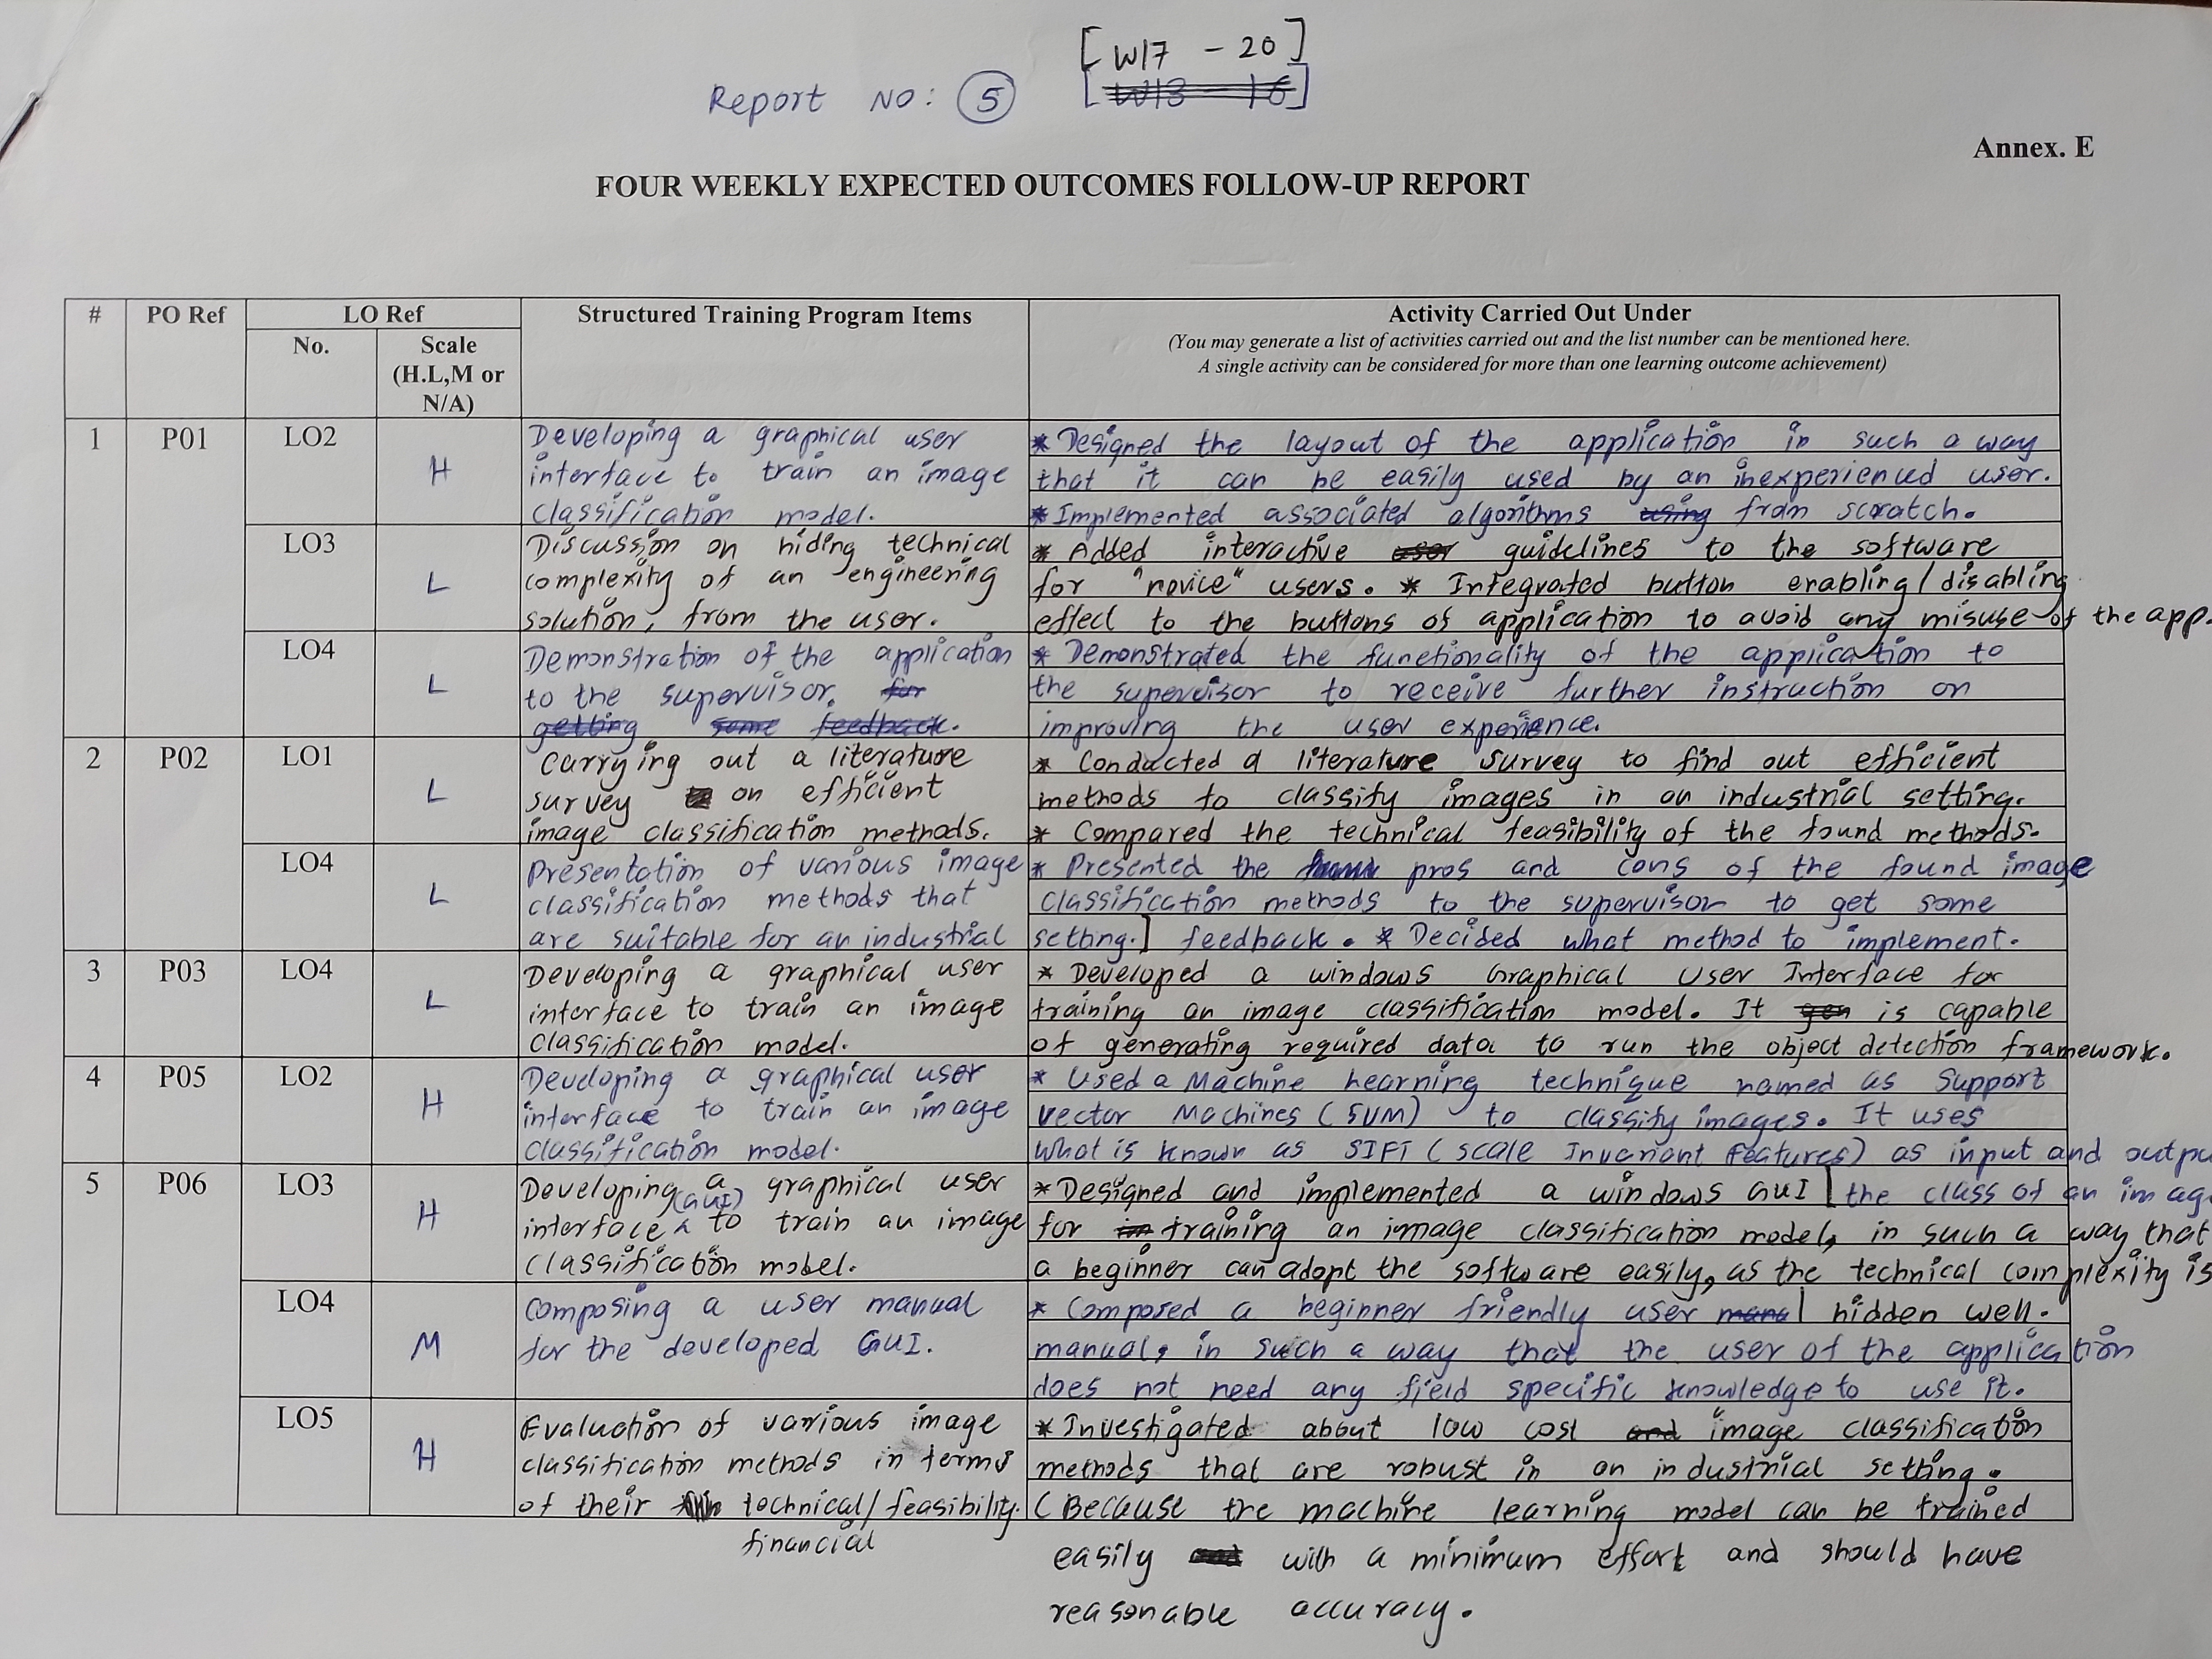 Report No: 5 [W17 - 20]
Annex. E
FOUR WEEKLY EXPECTED OUTCOMES FOLLOW-UP REPORT
#
PO Ref
LO Ref
No.
Scale
(H.L,M or
N/A)
Structured Training Program Items
Activity Carried Out Under
(You may generate a list of activities carried out and the list number can be mentioned here.
A single activity can be considered for more than one learning outcome achievement)
1
P01
LO2
H
Developing a graphical user
interface to train an image
classification model.
* Designed the layout of the application in such a way
that it can be easily used by an inexperienced user.
* Implemented associated algorithms from scratch.
LO3
L
Discussion on hiding technical
complexity of an engineering
solution, from the user.
* Added interactive guidelines to the software
for "novice" users. * Integrated button enabling/disabling
effect to the buttons of application to avoid any misuse of the app.
LO4
L
Demonstration of the application
to the supervisor.
getting some feedback.
* Demonstrated the functionality of the application to
the supervisor to receive further instruction on
improving the user experience.
2
P02
LO1
L
Carrying out a literature
survey on efficient
image classification methods.
* Conducted a literature survey to find out efficient
methods to classify images in an industrial setting.
* Compared the technical feasibility of the found methods.
LO4
L
Presentation of various image
classification methods that
are suitable for an industrial
setting.]
* Presented the pros and cons of the found image
classification methods to the supervisor to get some
feedback. * Decided what method to implement.
3
P03
LO4
L
Developing a graphical user
interface to train an image
classification model.
* Developed a windows Graphical User Interface for
training an image classification model. It is capable
of generating required data to run the object detection framework.
4
P05
LO2
H
Developing a graphical user
interface to train an image
classification model.
* Used a Machine learning technique named as Support
Vector Machines (SVM) to classify images. It uses
What is known as SIFT (Scale Invariant features) as input and outpu
the class of an imag
5
P06
LO3
H
Developing a graphical user
interface (GUI) to train an image
classification model.
* Designed and implemented a windows GUI
for training an image classification model, in such a way that
a beginner can adopt the software easily, as the technical complexity is
hidden well.
LO4
M
Composing a user manual
for the developed GUI.
* Composed a beginner friendly user
manual, in such a way that the user of the application
does not need any field specific knowledge to use it.
LO5
H
Evaluation of various image
classification methods in terms
of their technical/feasibility.
financial
* Investigated about low cost image classification
methods that are robust in an industrial setting.
(Because the machine learning model can be trained
easily with a minimum effort and should have
reasonable accuracy.